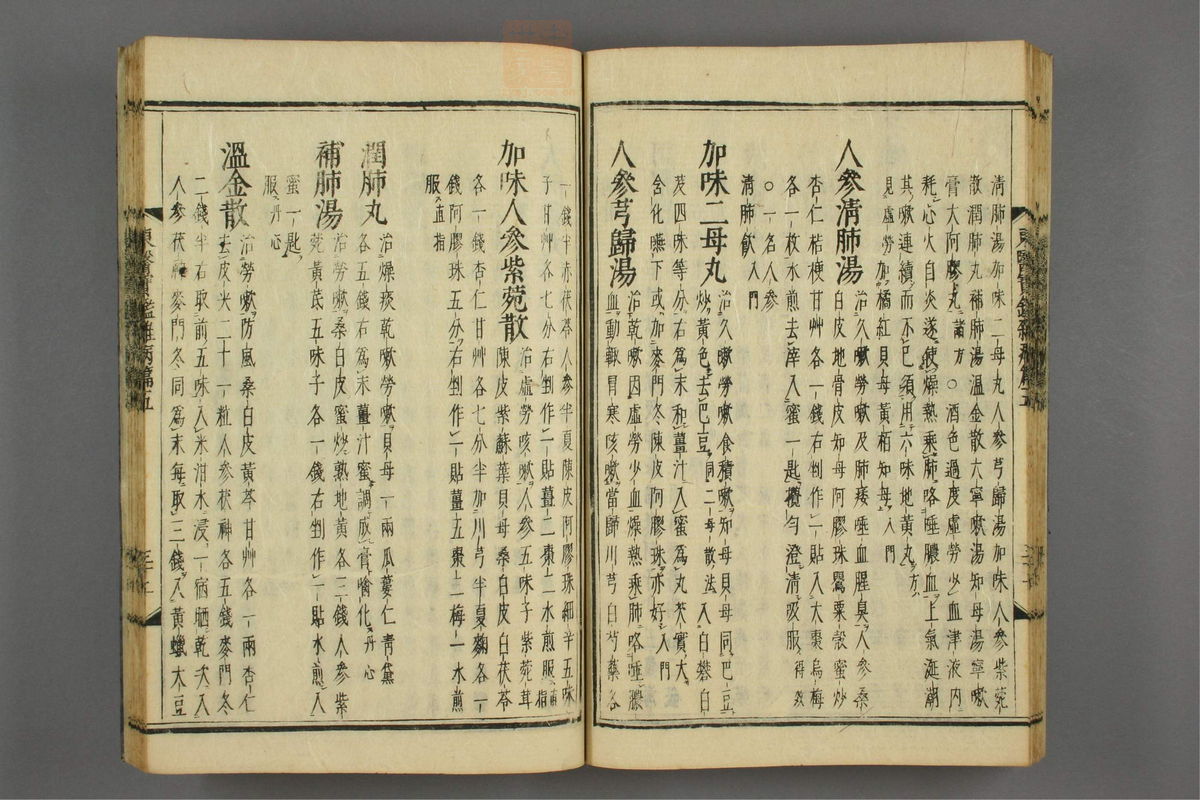 清肺湯加味二母丸人參芎歸湯加味人參紫菀
散潤肺丸補肺湯溫金散大寧嗽湯知母湯寧嗽
膏大阿膠丸諸方○酒色過度虛勞少血津液內
耗心火自炎遂使燥熱乘肺咯唾膿血上氣涎潮
其嗽連續而不已須用六味地黃丸方
見虛勞加橘紅貝母黃栢知母入門
人參淸肺湯治久嗽勞嗽及肺痿唾血腥臭人參桑
白皮地骨皮知母阿膠珠罌粟殼蜜炒
杏仁桔梗甘艸各一錢右剉作一貼入大棗烏梅
各一枚水煎去滓入蜜一匙攪勻澄淸吸服得效
○一名人參
淸肺飮入門
加味二母丸治久嗽勞嗽食積嗽知母貝母同巴豆
炒黃色去巴豆同二母散法入白礬白
芨四味等分右爲末和薑汁入蜜爲丸芡實大
含化嚥下或加麥門冬陳皮阿膠珠亦好入門
人參芎歸湯治乾嗽因虛勞少血燥熱乘肺咯唾膿
血動輒冒寒咳嗽當歸川芎白芍藥各
一錢半赤茯苓人參半夏陳皮阿膠珠細辛五味
子甘艸各七分右剉作一貼薑二棗二水煎服直指
加味人參紫菀散治虛勞咳嗽人參五味子紫菀茸
陳皮紫蘇葉貝母桑白皮白茯苓
各一錢杏仁甘艸各七分半加川芎半夏麴各一
錢阿膠珠五分右剉作一貼薑五棗二梅一水煎
服直指
潤肺丸治燥痰乾嗽勞嗽貝母一兩瓜蔞仁靑黛
各五錢右爲末薑汁蜜調成膏噙化丹心
補肺湯治勞嗽桑白皮蜜炒熟地黃各三錢人參紫
菀黃芪五味子各一錢右剉作一貼水煎入
蜜一匙
服丹心
溫金散治勞嗽防風桑白皮黃芩甘艸各一兩杏仁
去皮尖二十一粒人參茯神各五錢麥門冬
二錢半右取前五味入米泔水浸一宿晒乾次入
人參茯神麥門冬同爲末每取三錢入黃蠟大豆
東醫寶鑑雜病篇五
東醫寶鑑雜病篇五